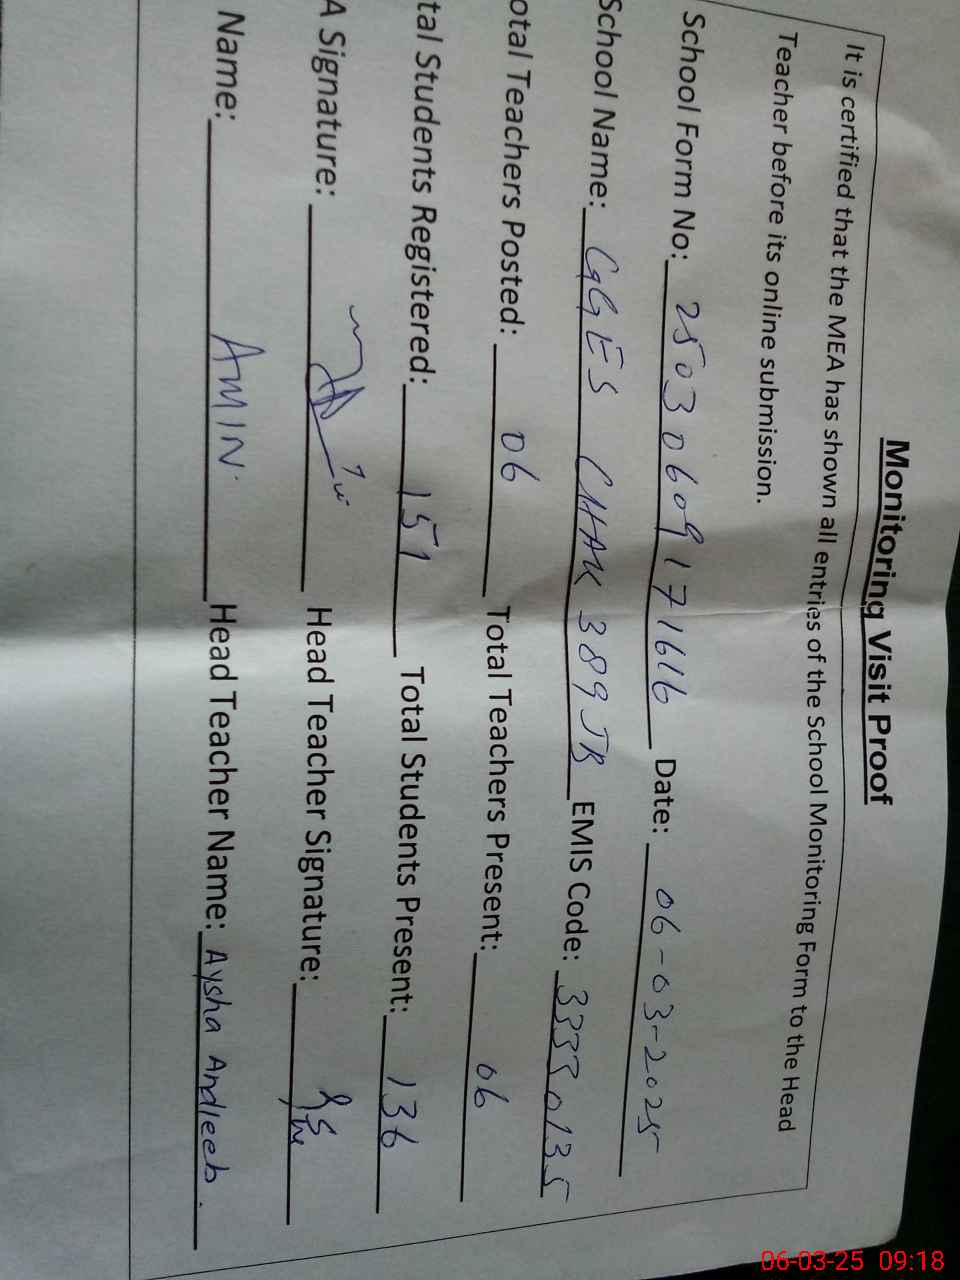 Monitoring Visit Proof
It is certified that the MEA has shown all entries of the School Monitoring Form to the Head
Teacher before its online submission.
School Form No: 2503060917 1616 Date: 06-03-2025
School Name: GGES CHAK 389 JB EMIS Code: 33330135
otal Teachers Posted: 06 Total Teachers Present: 06
tal Students Registered: 151 Total Students Present: 136
A Signature: Head Teacher Signature:
Name: AMIN. Head Teacher Name: Aysha Andleeb.
06-03-25 09:18